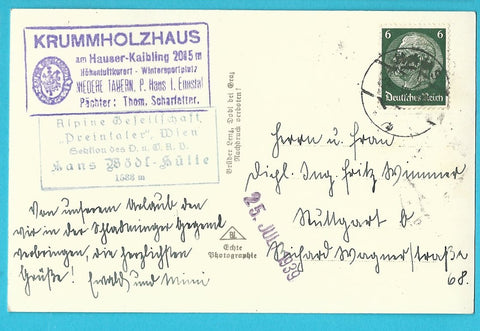 KRUMMHOLZHAUS
am Hauser-Kaibling 2015 m
Höhenluftkurort - Wintersportplatz
NIEDERE TAUERN, P. Haus i. Ennstal
Pächter: Thom. Scharfetter.
Alpine Gesellschaft
„Preintaler", Wien
Sektion des D. u. Ö. A. V.
Hans Wödl-Hütte
1538 m
Von unserem Urlaub den
wir in der Schladminger Gegend
verbringen, die herzlichsten
Grüße! Ewald und Mimi
Brüder Lenz, Dobl bei Graz
Nachdruck verboten!
BL
Echte
Photographie
25. JUL. 1939
6 6
Deutsches Reich
Herrn u. Frau
Dipl. Ing. Fritz Wimmer
Stuttgart
Richard Wagnerstraße
68.